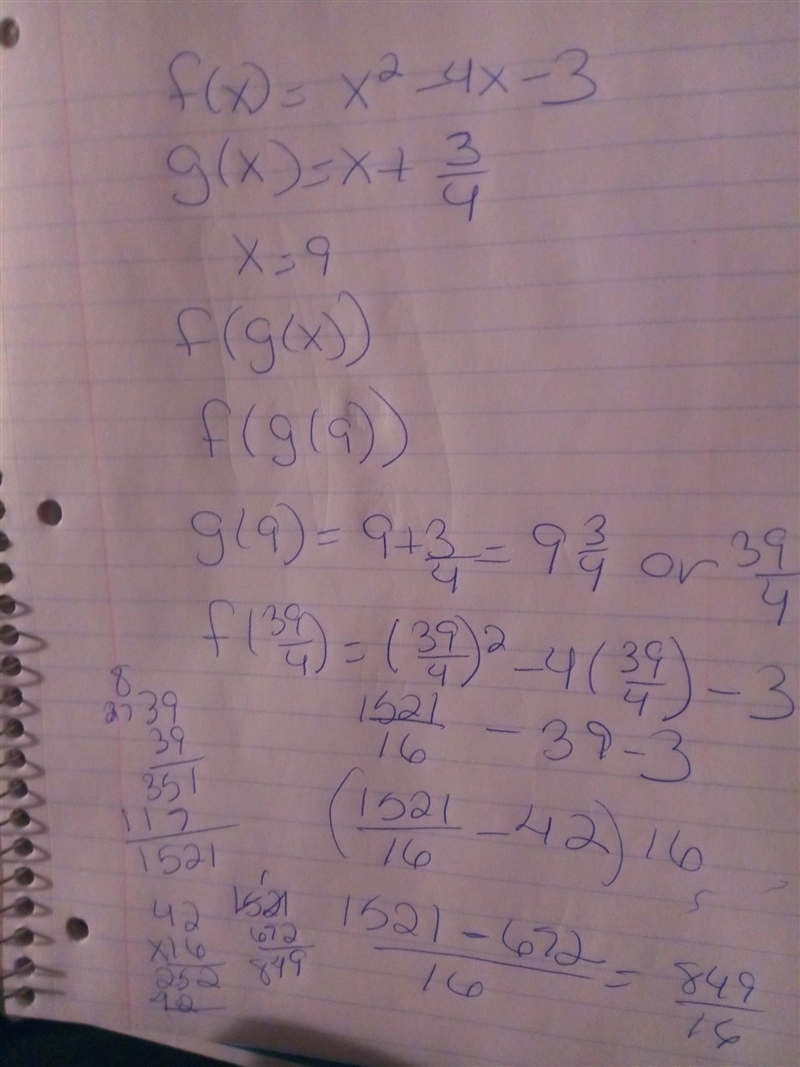 f(x) = x² - 4x - 3
g(x) = x + 3/4
x = 9
f(g(x))
f(g(9))
g(9) = 9 + 3/4 = 9 3/4 or 39/4
f(39/4) = (39/4)² - 4(39/4) - 3
1521/16 - 39 - 3
(1521/16 - 42) 16
1521 - 672/16 = 849/16
8
27 39
39
351
117
1521
42
x16
252
42
1
1521
672
849